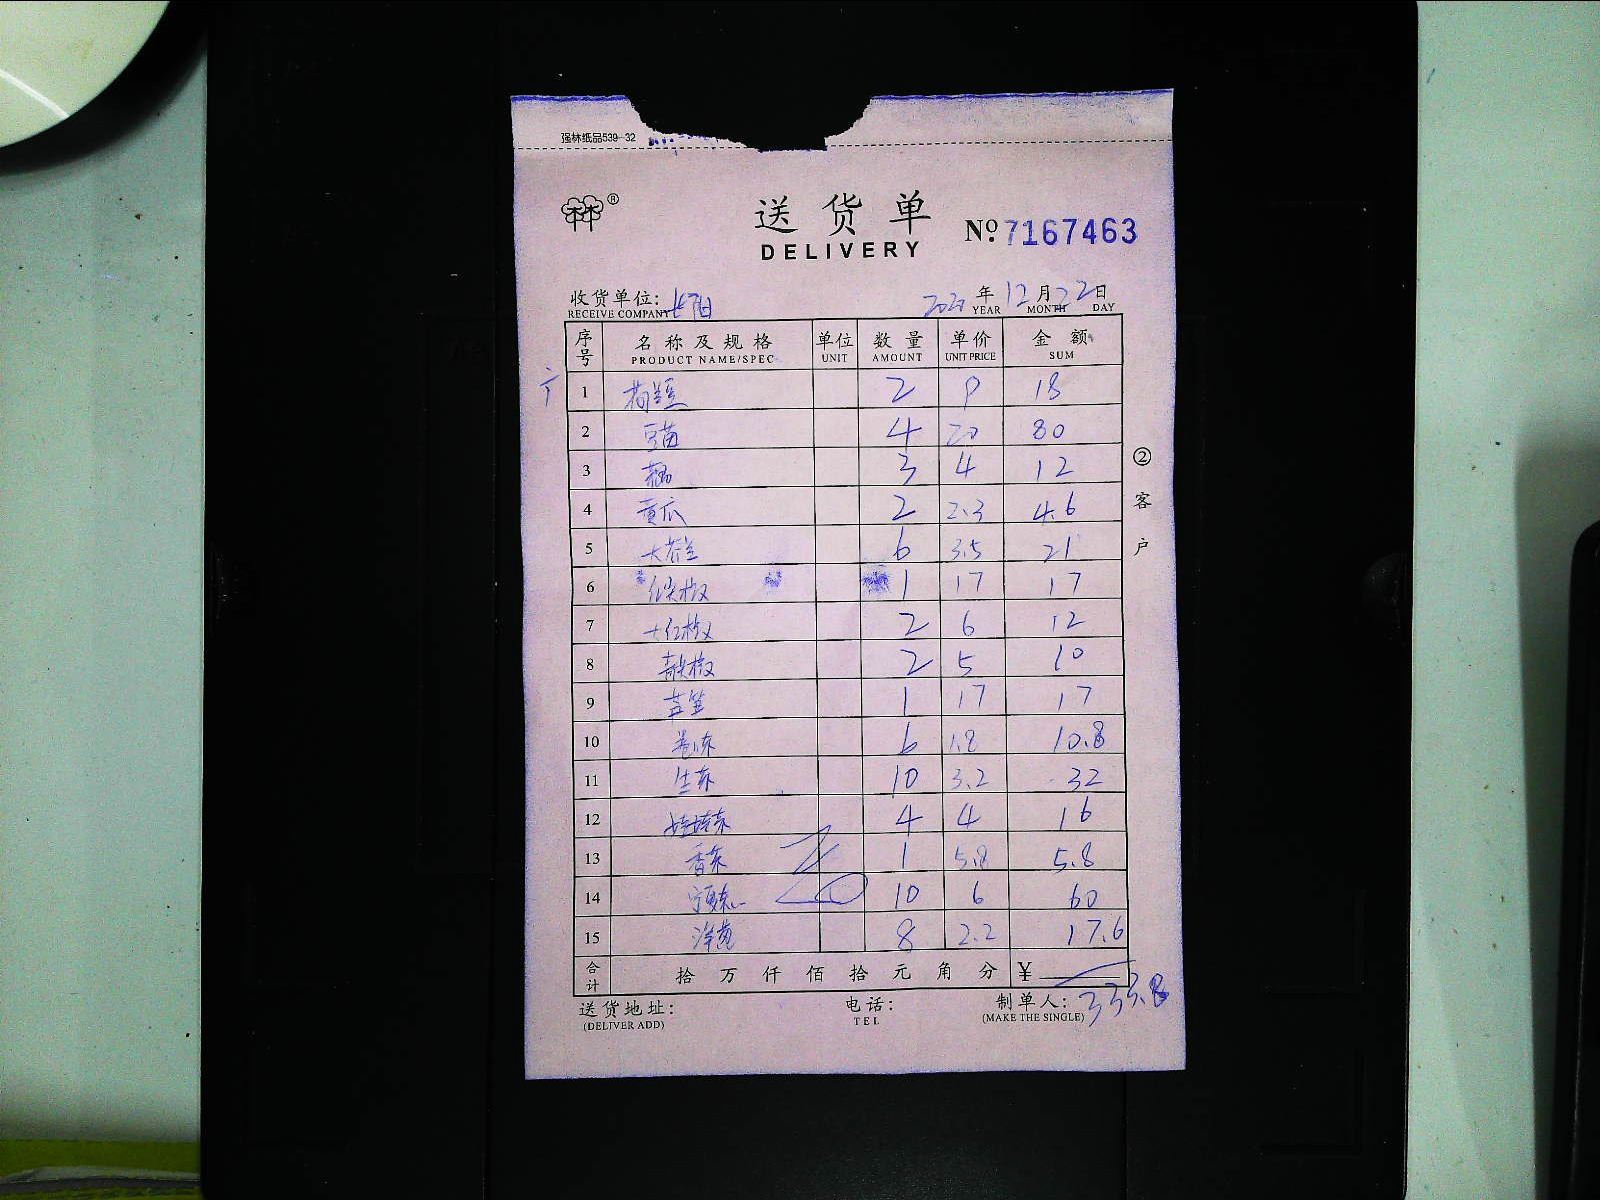 强林纸品539-32
林®
送货单
DELIVERY
No. 7167463
收货单位:
RECEIVE COMPANY
年 12月22日
YEAR MONTH DAY
序号 名称及规格 单位 数量 单价 金额
PRODUCT NAME/SPEC UNIT AMOUNT UNIT PRICE SUM
1 荷兰豆 2 9 18
2 豆苗 4 20 80
3 3 4 12
4 黄瓜 2 2.3 4.6
5 大芥兰 6 3.5 21
6 红尖椒 1 17 17
7 大红椒 2 6 12
8 青尖椒 2 5 10
9 芦笋 1 17 17
10 卷心菜 6 1.8 10.8
11 生菜 10 3.2 32
12 娃娃菜 4 4 16
13 香菜 1 5.8 5.8
14 宁夏菜心 10 6 60
15 洋葱 8 2.2 17.6
合计 拾 万 仟 佰 拾 元 角 分 ¥
333.8
送货地址: 电话: 制单人:
(DELIVER ADD) TEL (MAKE THE SINGLE)
②客户